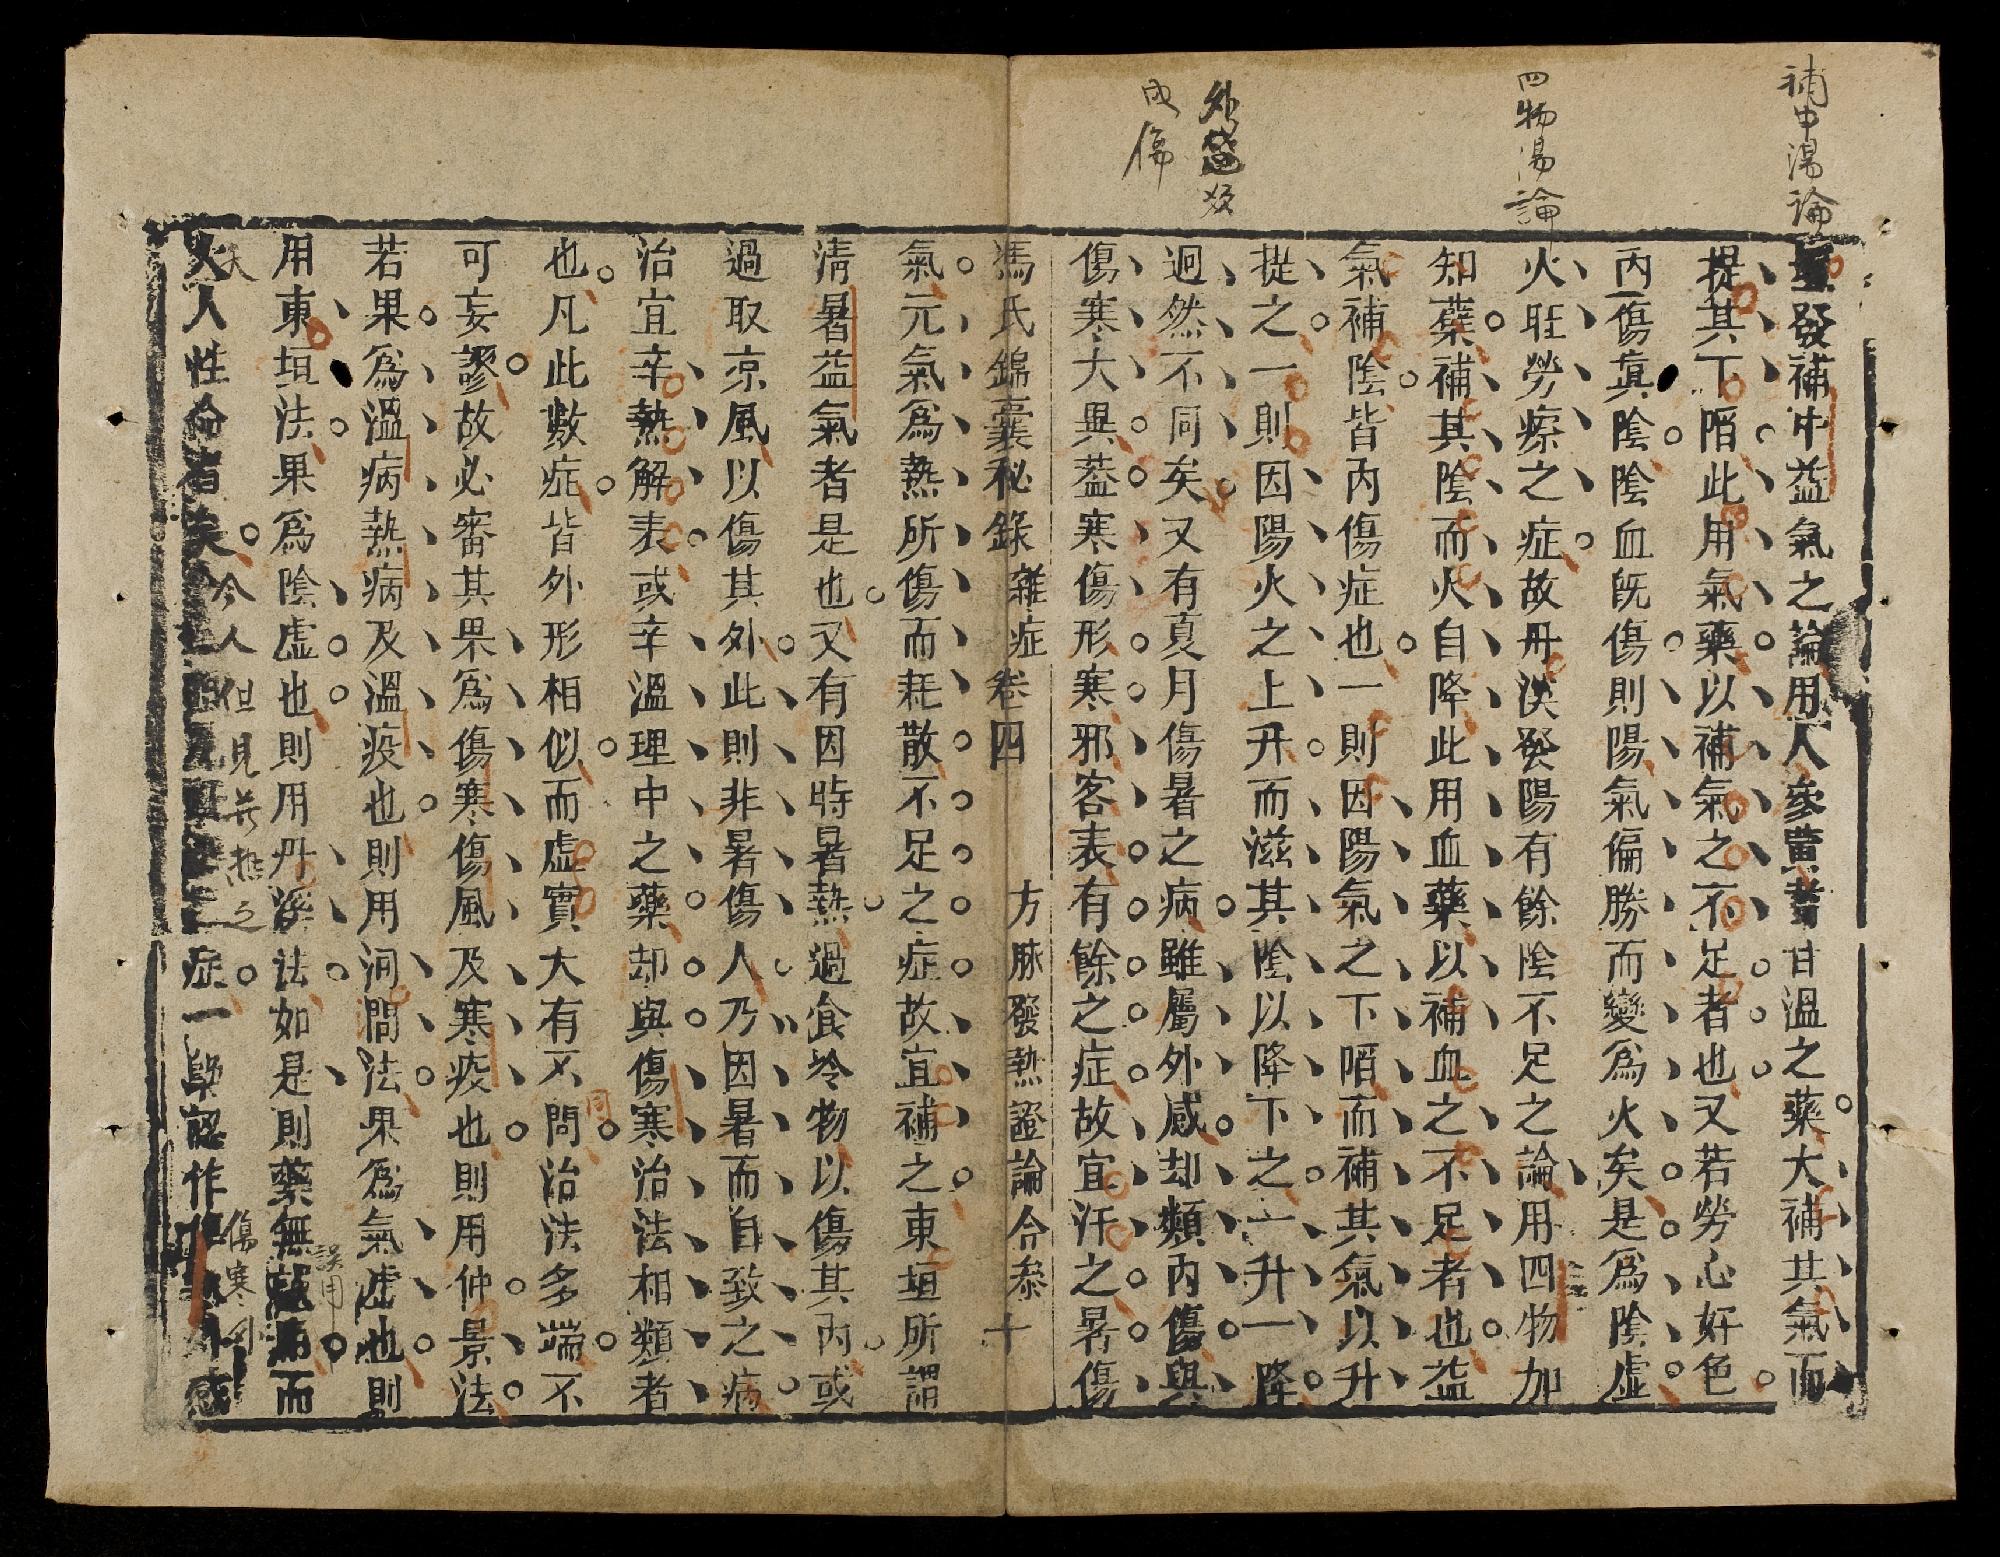 補中湯論
四物湯論
外盛發
成傷
發補中益氣之論用人參黃耆甘溫之藥大補其氣而
提其下陷此用氣藥以補氣之不足者也又若勞心好色
內傷真陰陰血旣傷則陽氣偏勝而變為火矣是為陰虛
火旺勞瘵之症故丹溪發陽有餘陰不足之論用四物加
知蘗補其陰而火自降此用血藥以補血之不足者也益
氣補陰皆內傷症也一則因陽氣之下陷而補其氣以升
提之一則因陽火之上升而滋其陰以降下之一升一降
迥然不同矣又有夏月傷暑之病雖屬外感却類內傷與
傷寒大異蓋寒傷形寒邪客表有餘之症故宜汗之暑傷
馮氏錦囊秘錄 雜症卷四 方脉發熱證論合參 十
氣元氣為熱所傷而耗散不足之症故宜補之東垣所謂
淸暑益氣者是也又有因時暑熱過食冷物以傷其內或
過取凉風以傷其外此則非暑傷人乃因暑而自致之病
治宜辛熱解表或辛溫理中之藥却與傷寒治法相類者
也凡此數症皆外形相似而虛實大有不同
問治法多端不
可妄謬故必審其果為傷寒傷風及寒疫也則用仲景法
若果為溫病熱病及溫疫也則用河間法果為氣虛也則
用東垣法果為陰虛也則用丹溪法如是則藥無誤用而
夭人性命者矣今人但見發熱之症一槩認作傷寒外感